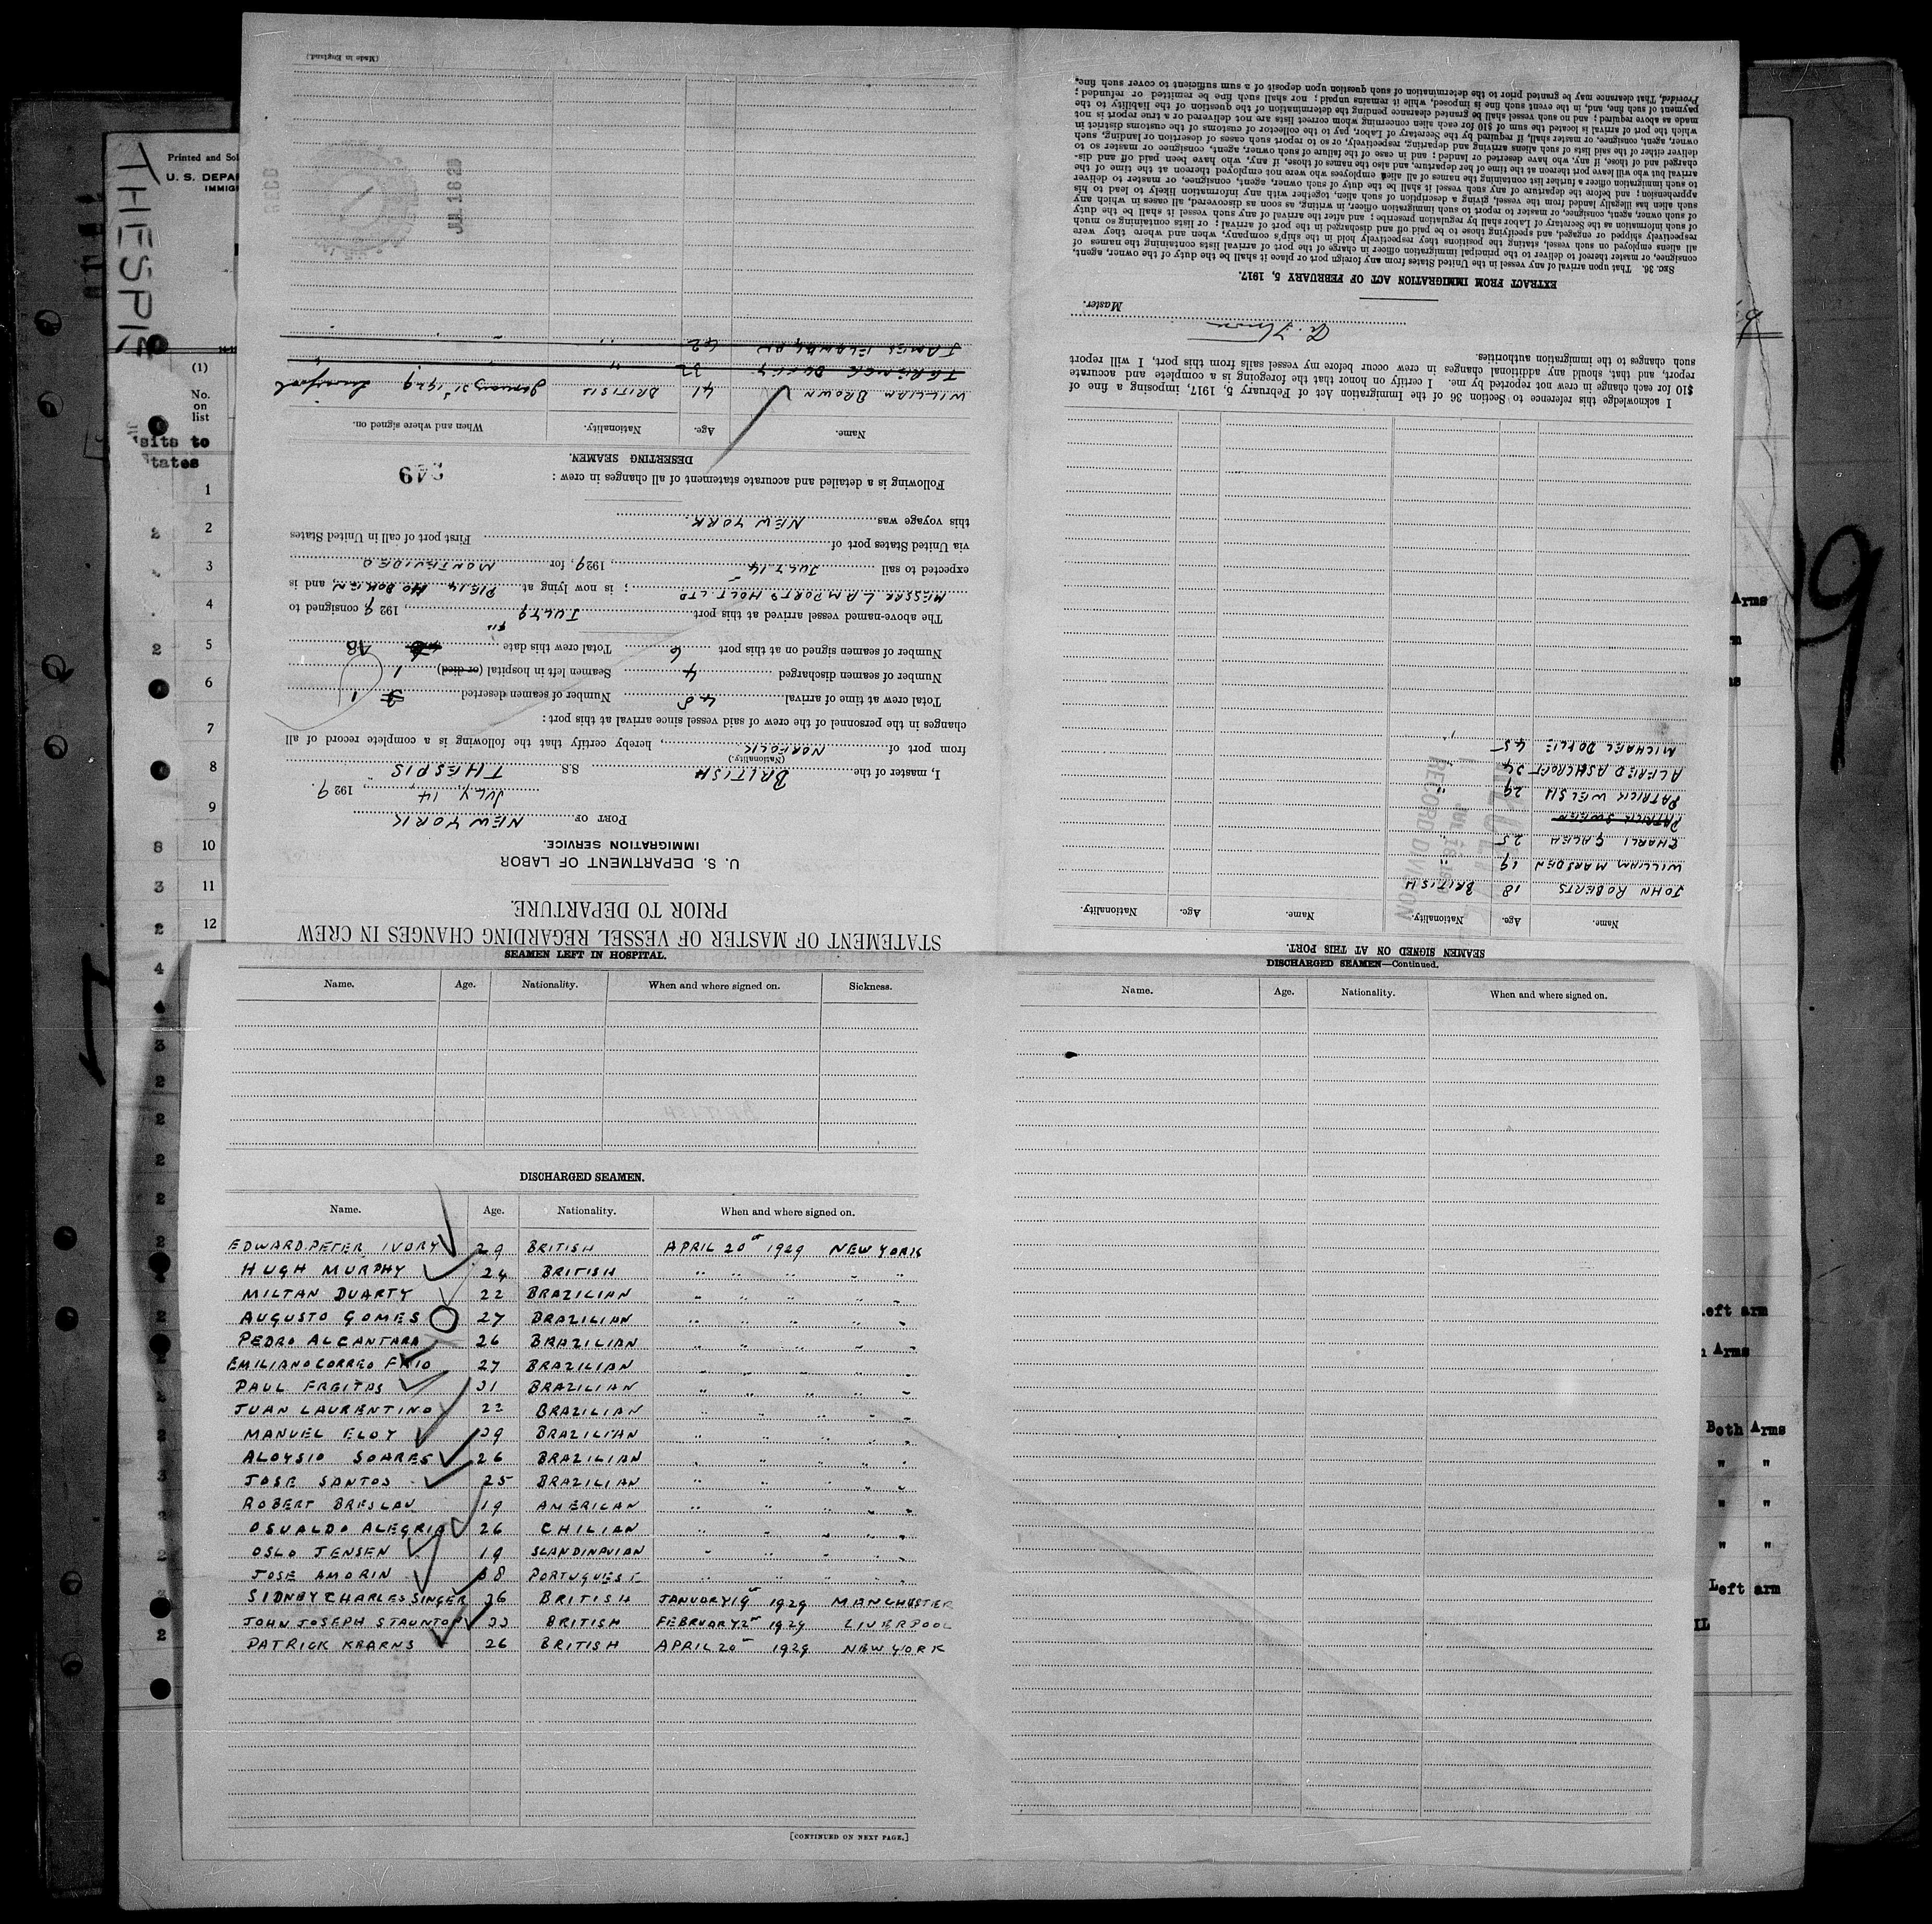 STATEMENT OF MASTER OF VESSEL REGARDING CHANGES IN CREW
PRIOR TO DEPARTURE.
U. S. DEPARTMENT OF LABOR
IMMIGRATION SERVICE.
PORT OF NEW YORK
JULY 14, 1929.
I, master of the BRITISH S.S. THESPIS,
(Nationality.)
from port of NORFOLK, hereby certify that the following is a complete record of all
changes in the personnel of the crew of said vessel since arrival at this port:
Total crew at time of arrival 48 Number of seamen deserted 1
Number of seamen discharged 4 Seamen left in hospital (or died) 1
Number of seamen signed on at this port 6 Total crew this date 48
The above-named vessel arrived at this port JULY 9, 1929, consigned to
MESSRS LAMPORT & HOLT LTD; is now lying at PIER 14 HOBOKEN, and is
expected to sail JULY 14, 1929, for MONTEVIDEO
via United States port of First port of call in United States
this voyage was NEW YORK.
Following is a detailed and accurate statement of all changes in crew:
249
DESERTING SEAMEN.
Name. Age. Nationality. When and where signed on.
WILLIAM BROWN 41 BRITISH January 31st 1929 Liverpool
TERENCE DUFFY 32 "
JAMES 42 "
RECD
JUL 18 29
(Made in England.)
SEAMEN SIGNED ON AT THIS PORT.
Name. Age. Nationality. Name. Age. Nationality.
JOHN ROBERTS 18 BRITISH
WILLIAM MARSDEN 19 "
CHARLI GALEA 25 "
PATRICK SWEEN
PATRICK WELSH 29 "
ALFRED ASHCROFT 24 "
MICHAEL DOYLIE 45 "
JUL 18 1929
RECORD DIVISION
I acknowledge this reference to Section 36 of the Immigration Act of February 5, 1917, imposing a fine of
$10 for each change in crew not reported by me. I certify on honor that the foregoing is a complete and accurate
report, and that, should any additional changes in crew occur before my vessel sails from this port, I will report
such changes to the immigration authorities.
Master.
EXTRACT FROM IMMIGRATION ACT OF FEBRUARY 5, 1917.
SEC. 36. That upon arrival of any vessel in the United States from any foreign port or place it shall be the duty of the owner, agent,
consignee, or master thereof to deliver to the principal immigration officer in charge of the port of arrival lists containing the names of
all aliens employed on such vessel, stating the positions they respectively hold in the ship's company, when and where they were
respectively shipped or engaged, and specifying those to be paid off and discharged in the port of arrival; or lists containing so much
of such information as the Secretary of Labor shall by regulation prescribe; and after the arrival of any such vessel it shall be the duty
of such owner, agent, consignee, or master to report to such immigration officer, in writing, as soon as discovered, all cases in which any
such alien has illegally landed from the vessel, giving a description of such alien, together with any information likely to lead to his
apprehension; and before the departure of any such vessel it shall be the duty of such owner, agent, consignee, or master to deliver
to such immigration officer a further list containing the names of all alien employees who were not employed thereon at the time of the
arrival but who will leave port thereon at the time of her departure, and also the names of those, if any, who have been paid off and dis-
charged and of those, if any, who have deserted or landed; and in case of the failure of such owner, agent, consignee or master so to
deliver either of the said lists of such aliens arriving and departing, respectively, or so to report such cases of desertion or landing, such
owner, agent, consignee, or master shall, if required by the Secretary of Labor, pay to the collector of customs of the customs district in
which the port of arrival is located the sum of $10 for each alien concerning whom correct lists are not delivered or a true report is not
made as above required; and no such vessel shall be granted clearance pending the determination of the question of the liability to the
payment of such fine, and, in the event such fine is imposed, while it remains unpaid; nor shall such fine be remitted or refunded:
Provided, That clearance may be granted prior to the determination of such question upon deposit of a sum sufficient to cover such fine.
SEAMEN LEFT IN HOSPITAL.
Name. Age. Nationality. When and where signed on. Sickness.
DISCHARGED SEAMEN.
Name. Age. Nationality. When and where signed on.
EDWARD PETER IVORY 29 BRITISH APRIL 20th 1929 NEW YORK
HUGH MURPHY 24 BRITISH " " " " "
MILTAN DUARTY 22 BRAZILIAN " " " " "
AUGUSTO GOMES 27 BRAZILIAN " " " " "
PEDRO ALCANTARA 26 BRAZILIAN " " " " "
EMILIANO CORREO 27 BRAZILIAN " " " " "
PAUL FREITAS 31 BRAZILIAN " " " " "
JUAN LAURENTINO 22 BRAZILIAN " " " " "
MANUEL ELOY 39 BRAZILIAN " " " " "
ALOYSIO SOARES 26 BRAZILIAN " " " " "
JOSE SANTOS 25 BRAZILIAN " " " " "
ROBERT BRESLAU 19 AMERICAN " " " " "
OSUALDO ALEGRIA 26 CHILIAN " " " " "
OSLO JENSEN 19 SCANDINAVIAN " " " " "
JOSE AMORIN 38 PORTUGUESE " " " " "
SIDNEY CHARLES SINGER 36 BRITISH JANUARY 19 1929 MANCHESTER
JOHN JOSEPH STAUNTON 33 BRITISH FEBRUARY 2nd 1929 LIVERPOOL
PATRICK KEARNS 26 BRITISH APRIL 20th 1929 NEW YORK
[CONTINUED ON NEXT PAGE.]
DISCHARGED SEAMEN—Continued.
Name. Age. Nationality. When and where signed on.
THESPIS
Printed and Sol
U. S. DEPAR
IMMIG
(1)
No.
on
list
sits to
States
1
2
3
4
5
6
7
8
9
10
11
12
Arms
Left arm
Arms
Both Arms
" "
" "
" "
Left arm
9